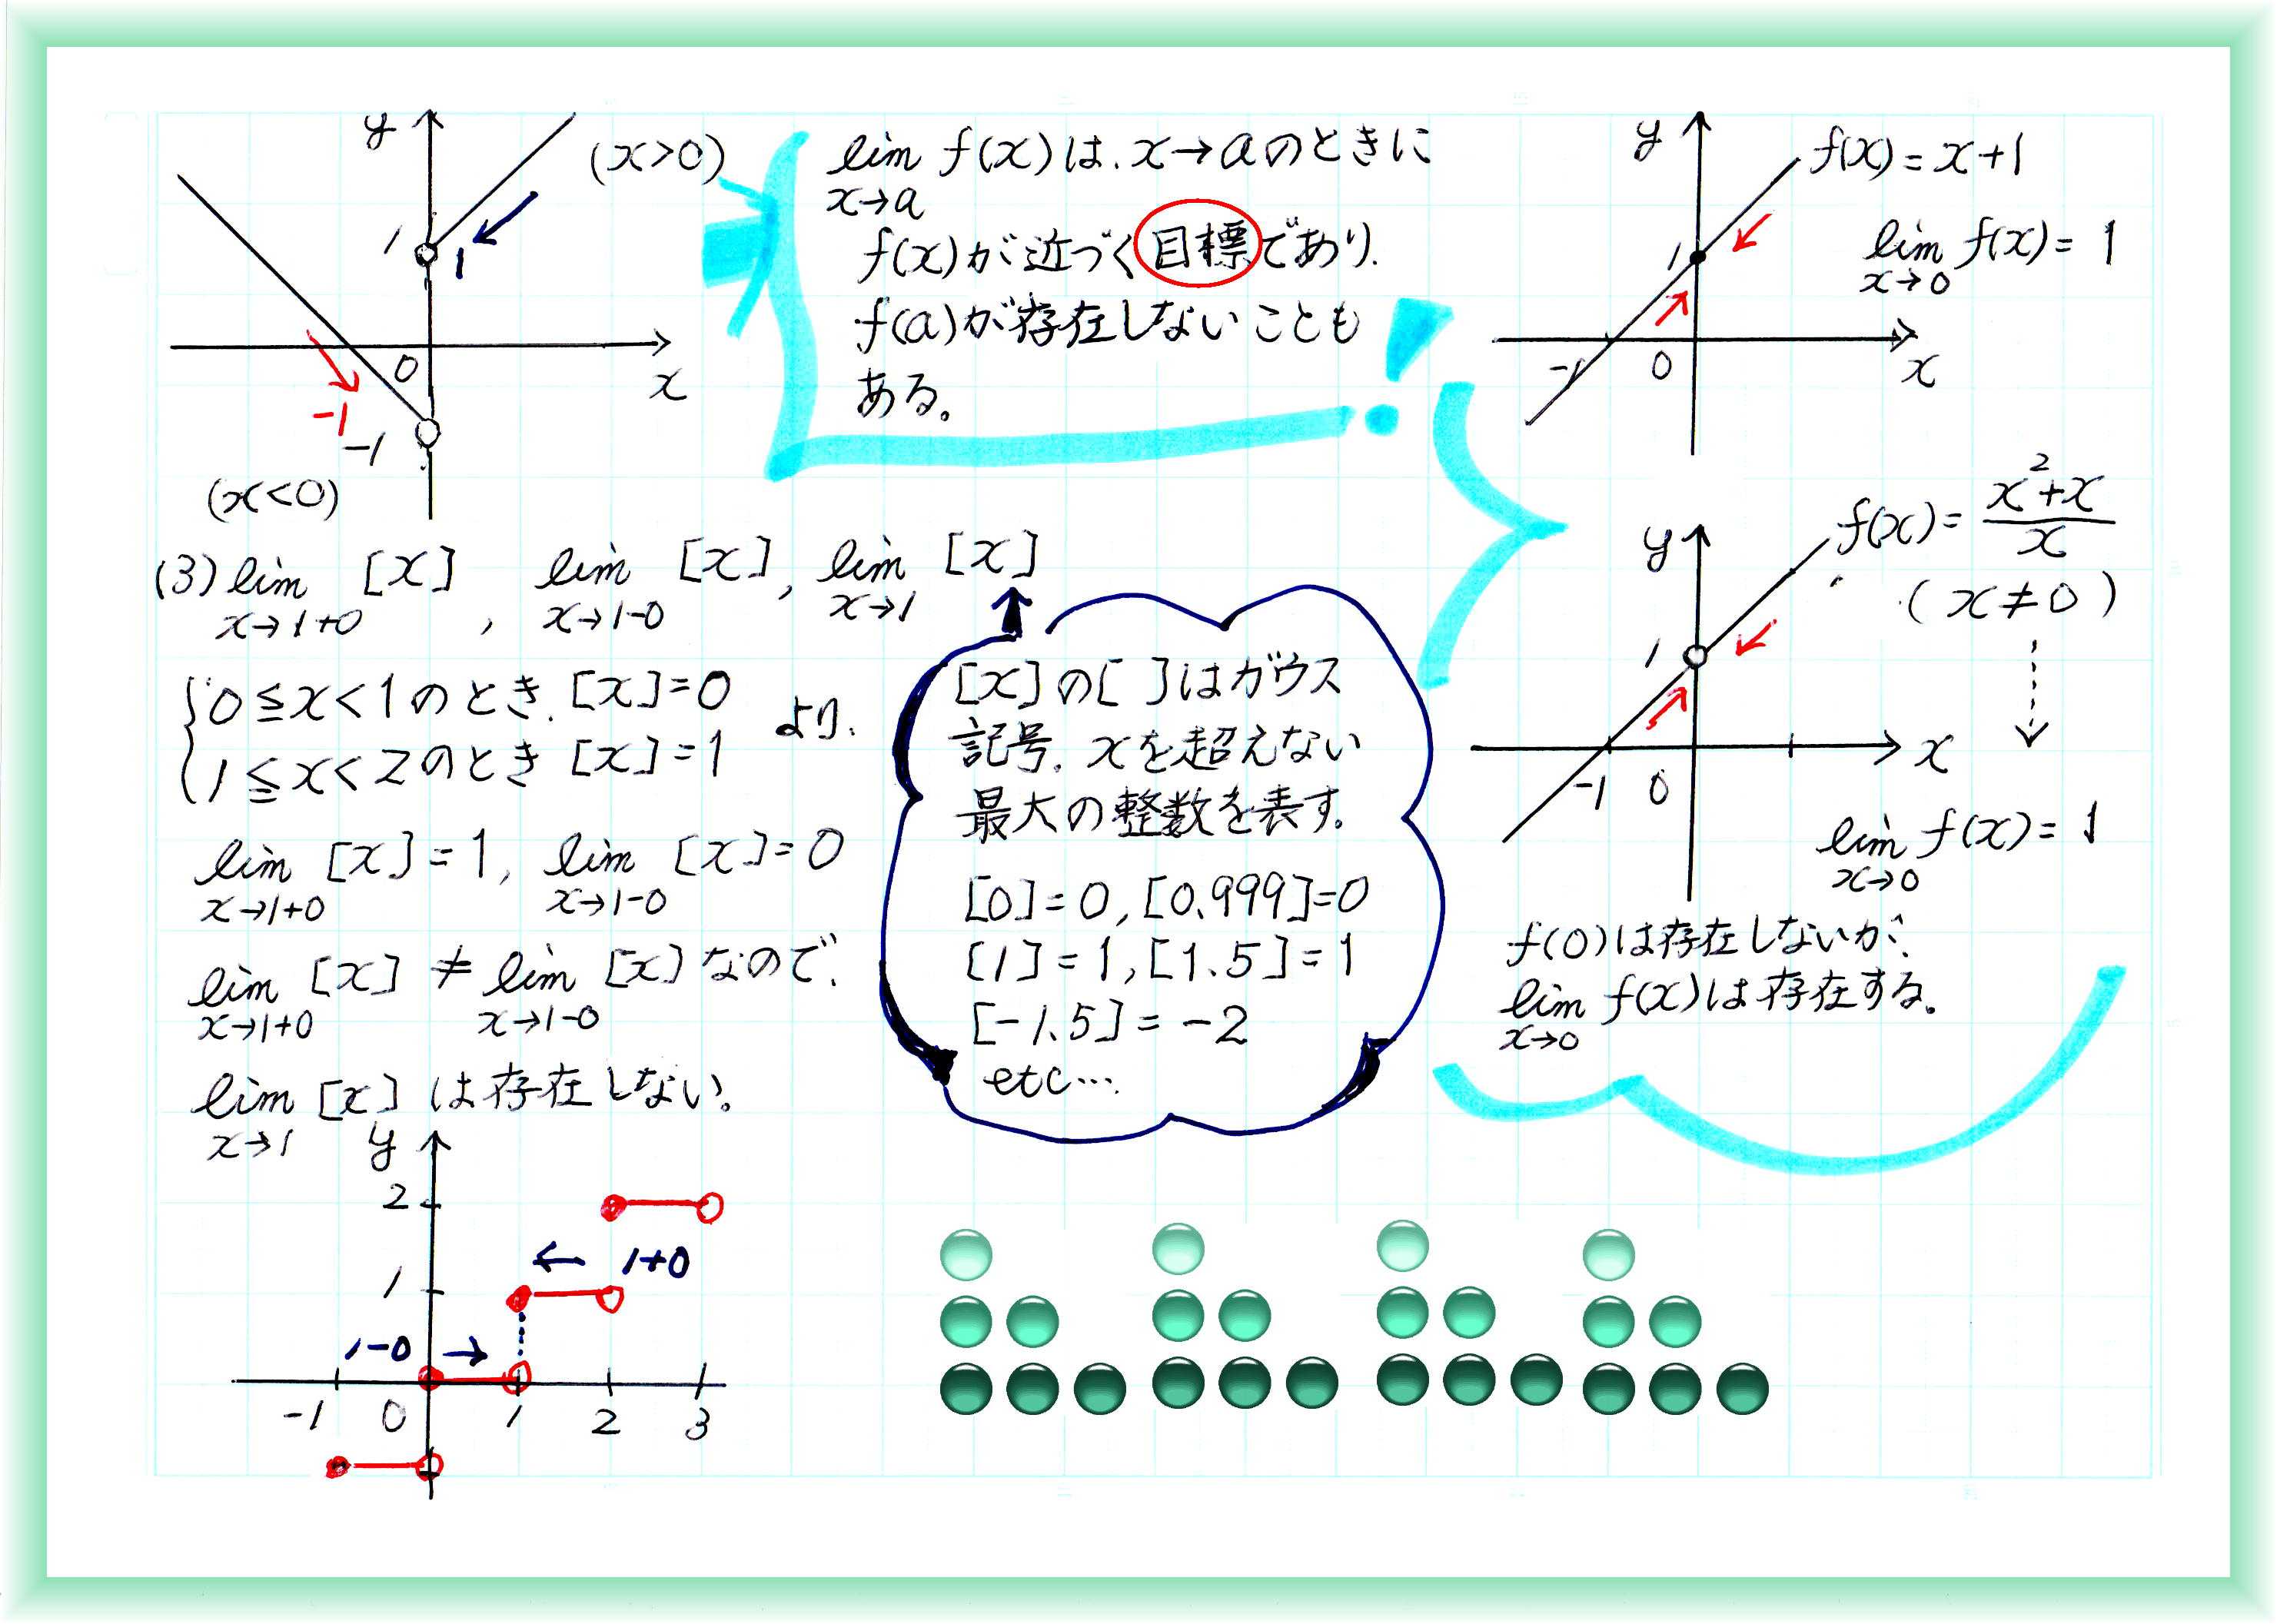 y
(x>0)
1
1
0
x
-1
-1
(x<0)
lim f(x)は、x→aのときに
x→a
f(x)が近づく目標であり、
f(a)が存在しないことも
ある。
!
y
f(x)=x+1
lim f(x)=1
x→0
1
-1 0 x
f(x)=x²+x/x
(x≠0)
y
1
-1 0 x
lim f(x)=1
x→0
f(0)は存在しないが、
lim f(x)は存在する。
x→0
(3) lim [x], lim [x], lim [x]
x→1+0 x→1-0 x→1
0≦x<1のとき、[x]=0
1≦x<2のとき [x]=1
より、
lim [x]=1, lim [x]=0
x→1+0 x→1-0
lim [x] ≠ lim [x] なので、
x→1+0 x→1-0
lim [x] は存在しない。
x→1
[x]の[ ]はガウス
記号。xを超えない
最大の整数を表す。
[0]=0, [0.999]=0
[1]=1, [1.5]=1
[-1.5]=-2
etc…
y
2
← 1+0
1
1-0 →
-1 0 1 2 3